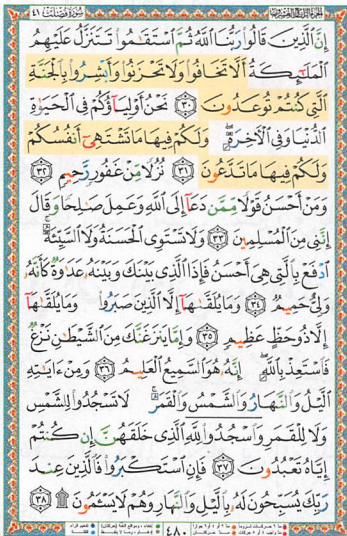 الجزء الرابع والعشرون سورة فصلت ٤١
إِنَّ ٱلَّذِينَ قَالُوا۟ رَبُّنَا ٱللَّهُ ثُمَّ ٱسْتَقَـٰمُوا۟ تَتَنَزَّلُ عَلَيْهِمُ
ٱلْمَلَـٰٓئِكَةُ أَلَّا تَخَافُوا۟ وَلَا تَحْزَنُوا۟ وَأَبْشِرُوا۟ بِٱلْجَنَّةِ
ٱلَّتِى كُنتُمْ تُوعَدُونَ ٣٠ نَحْنُ أَوْلِيَآؤُكُمْ فِى ٱلْحَيَوٰةِ
ٱلدُّنْيَا وَفِى ٱلْـَٔاخِرَةِ ۖ وَلَكُمْ فِيهَا مَا تَشْتَهِىٓ أَنفُسُكُمْ
وَلَكُمْ فِيهَا مَا تَدَّعُونَ ٣١ نُزُلًا مِّنْ غَفُورٍ رَّحِيمٍ ٣٢
وَمَنْ أَحْسَنُ قَوْلًا مِّمَّن دَعَآ إِلَى ٱللَّهِ وَعَمِلَ صَـٰلِحًا وَقَالَ
إِنَّنِى مِنَ ٱلْمُسْلِمِينَ ٣٣ وَلَا تَسْتَوِى ٱلْحَسَنَةُ وَلَا ٱلسَّيِّئَةُ ۚ
ٱدْفَعْ بِٱلَّتِى هِىَ أَحْسَنُ فَإِذَا ٱلَّذِى بَيْنَكَ وَبَيْنَهُۥ عَدَٰوَةٌ كَأَنَّهُۥ
وَلِىٌّ حَمِيمٌ ٣٤ وَمَا يُلَقَّىٰهَآ إِلَّا ٱلَّذِينَ صَبَرُوا۟ وَمَا يُلَقَّىٰهَآ
إِلَّا ذُو حَظٍّ عَظِيمٍ ٣٥ وَإِمَّا يَنزَغَنَّكَ مِنَ ٱلشَّيْطَـٰنِ نَزْغٌ
فَٱسْتَعِذْ بِٱللَّهِ ۖ إِنَّهُۥ هُوَ ٱلسَّمِيعُ ٱلْعَلِيمُ ٣٦ وَمِنْ ءَايَـٰتِهِ
ٱلَّيْلُ وَٱلنَّهَارُ وَٱلشَّمْسُ وَٱلْقَمَرُ ۚ لَا تَسْجُدُوا۟ لِلشَّمْسِ
وَلَا لِلْقَمَرِ وَٱسْجُدُوا۟ لِلَّهِ ٱلَّذِى خَلَقَهُنَّ إِن كُنتُمْ
إِيَّاهُ تَعْبُدُونَ ٣٧ فَإِنِ ٱسْتَكْبَرُوا۟ فَٱلَّذِينَ عِندَ
رَبِّكَ يُسَبِّحُونَ لَهُۥ بِٱلَّيْلِ وَٱلنَّهَارِ وَهُمْ لَا يَسْـَٔمُونَ ۩ ٣٨
٤٨٠